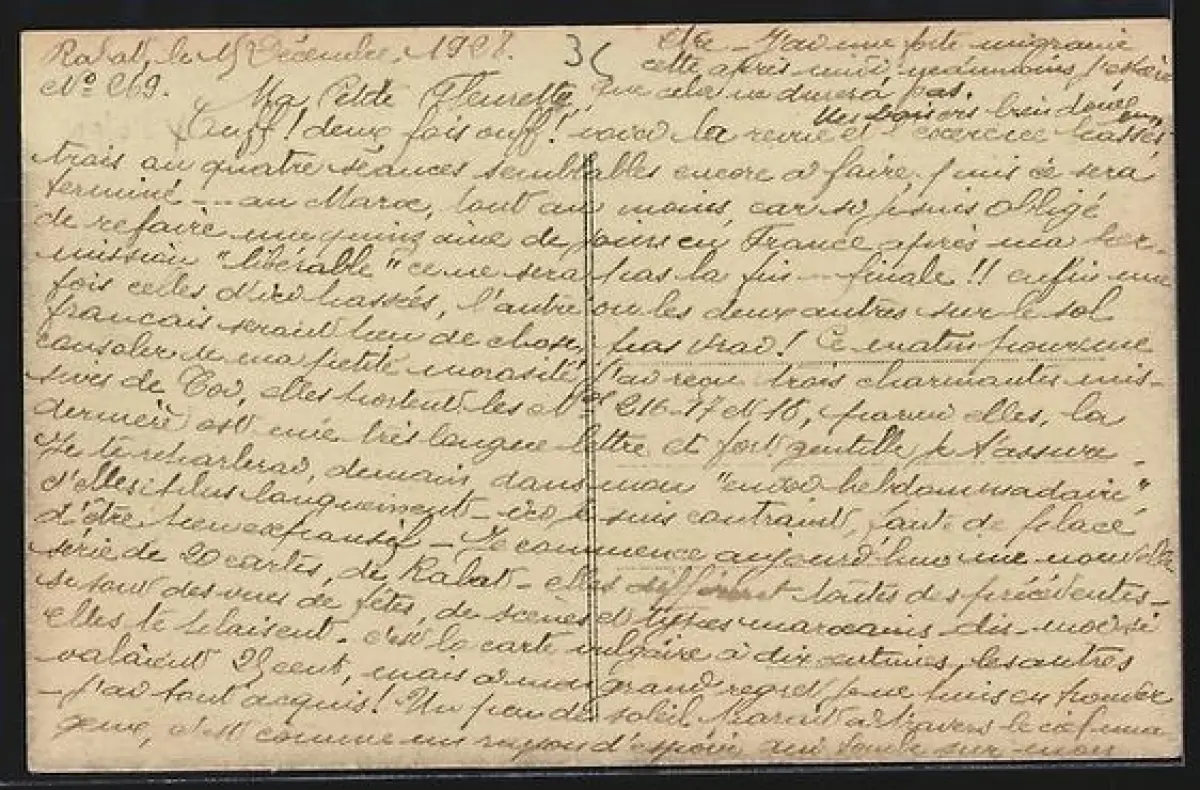 Rabat, le 15 Décembre, 1928.
No 269.
Ma Petite Fleurette,
Ouff! deux fois ouff! voici la revue et exercice passés,
trois ou quatre séances semblables encore à faire, puis ce sera
terminé --- au Maroc, tout au moins, car si je suis obligé
de refaire une quinzaine de jours en France après ma per-
mission "libérable" ce ne sera pas la fin --- finale!! enfin une
fois celles d'ici passées, l'autre ou les deux autres sur le sol
français seront bien de chose, pas vrai! Ce matin pour me
consoler de ma petite morosité j'ai reçu trois charmantes mis-
sives de Toi, elles portent les Nos 216-17 et 18, parmi elles, la
dernière est une très longue lettre et fort gentille je t'assure.
Je te reparlerai, demain, dans mon "envoi hebdommadaire"
d'elles et plus longuement - ici je suis contraint, faute de place
d'être bien expansif - Je commence aujourd'hui une nouvelle
série de 20 cartes, de Rabat - elles diffèrent toutes des précédentes -
se sont des vues de fêtes, de scènes et types marocains dis-moi si
elles te plaisent. c'est la carte vulgaire à dix centimes, les autres
valaient 25 cent, mais à mon grand regret je ne puis en trouver
- j'ai tout acquis! Un peu de soleil paraît à travers le ciel nua-
geux, c'est comme un rayon d'espoir qui tombe sur mon
être - J'ai une forte migraine
cette après midi, néanmoins j'espère
que cela ne durera pas.
Mes baisers bien doux